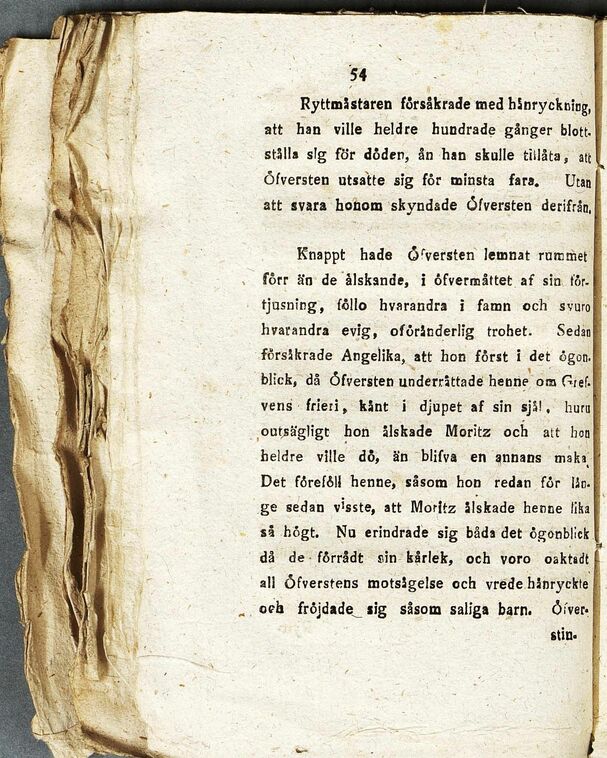 54
Ryttmästaren försäkrade med hänryckning,
att han ville heldre hundrade gånger blott-
ställa sig för döden, än han skulle tillåta, att
Öfversten utsatte sig för minsta fara. Utan
att svara honom skyndade Öfversten derifrån.
Knappt hade Öfversten lemnat rummet
förr än de älskande, i öfvermåttet af sin för-
tjusning, föllo hvarandra i famn och svuro
hvarandra evig, oföränderlig trohet. Sedan
försäkrade Angelika, att hon först i det ögon-
blick, då Öfversten underrättade henne om Gref-
vens frieri, känt i djupet af sin själ, huru
outsägligt hon älskade Moritz och att hon
heldre ville dö, än blifva en annans maka
Det föreföll henne, såsom hon redan för län-
ge sedan visste, att Moritz älskade henne lika
så högt. Nu erindrade sig båda det ögonblick
då de förrådt sin kärlek, och voro oaktadt
all Öfverstens motsägelse och vrede hänryckte
och fröjdade sig såsom saliga barn. Öfver-
stin-